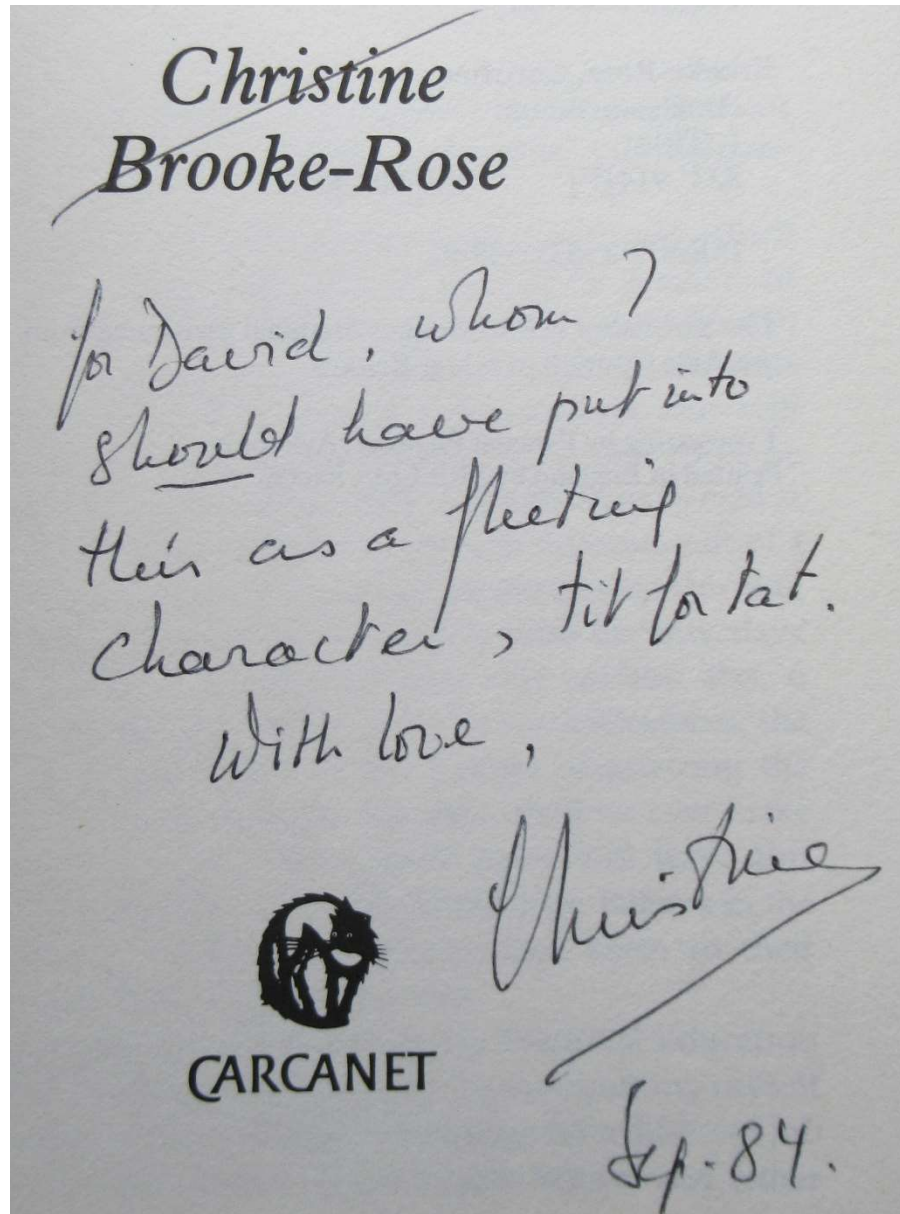 Christine
Brooke-Rose
for David, whom I
should have put into
this as a fleeting
character, tit for tat.
With love,
Christine
CARCANET
Sep. 84.